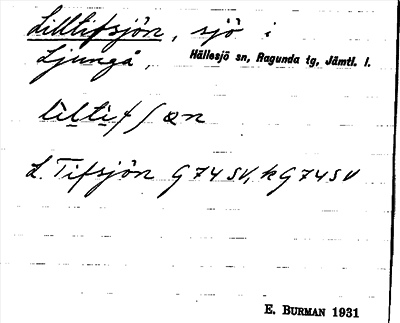 Lilltifsjön, sjö i
Ljungå, Hällesjö sn, Ragunda tg, Jämtl. l.
L. Tifsjön G 74 SV, k G 74 SV
E. BURMAN 1931